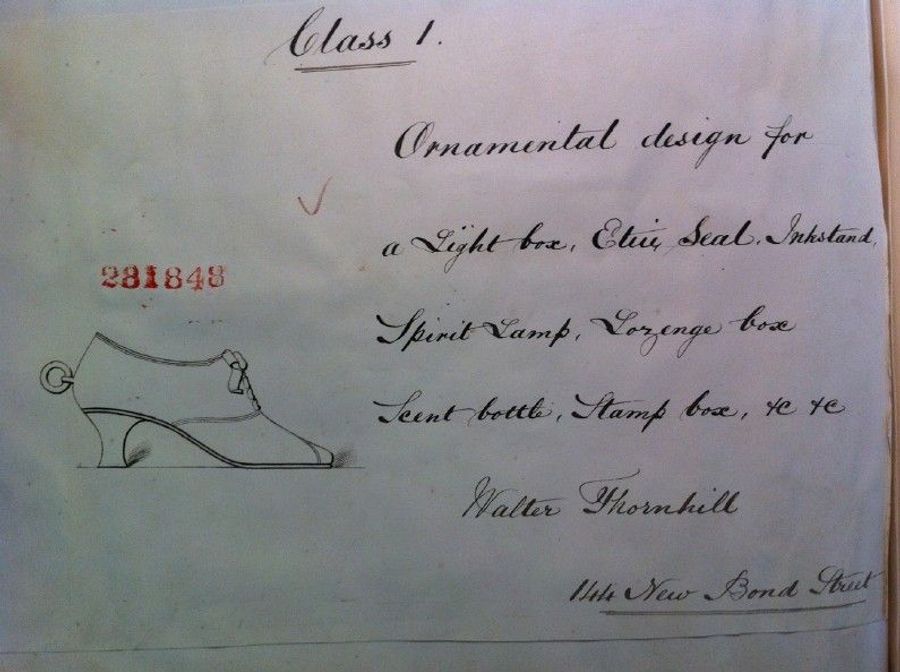 Class 1.
Ornamental design for
a Light box, Etui, Seal, Inkstand,
Spirit Lamp, Lozenge box
Scent bottle, Stamp box, &c &c
Walter Thornhill
144 New Bond Street
281848